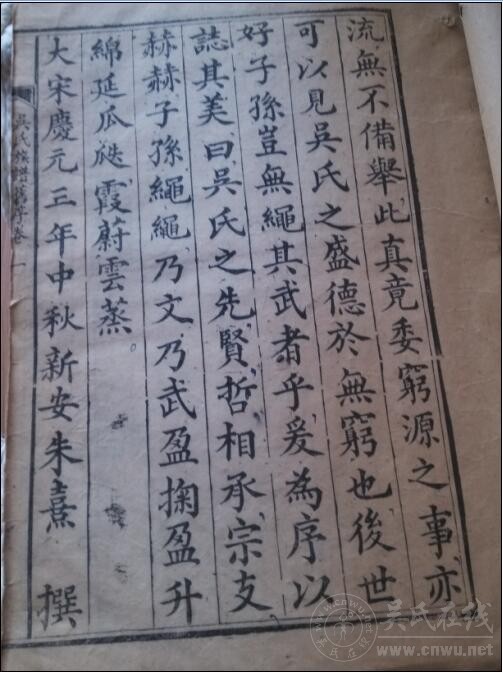 流無不備舉此真竟委窮源之事亦
可以見吳氏之盛德於無窮也後世
好子孫豈無繩其武者乎爰為序以
誌其美曰吳氏之先賢哲相承宗支
赫赫子孫繩繩乃文乃武盈掬盈升
綿延瓜瓞霞蔚雲蒸。
大宋慶元三年中秋新安朱熹 撰
吳氏族譜舊序卷一
吴氏在线
www.cnwu.net